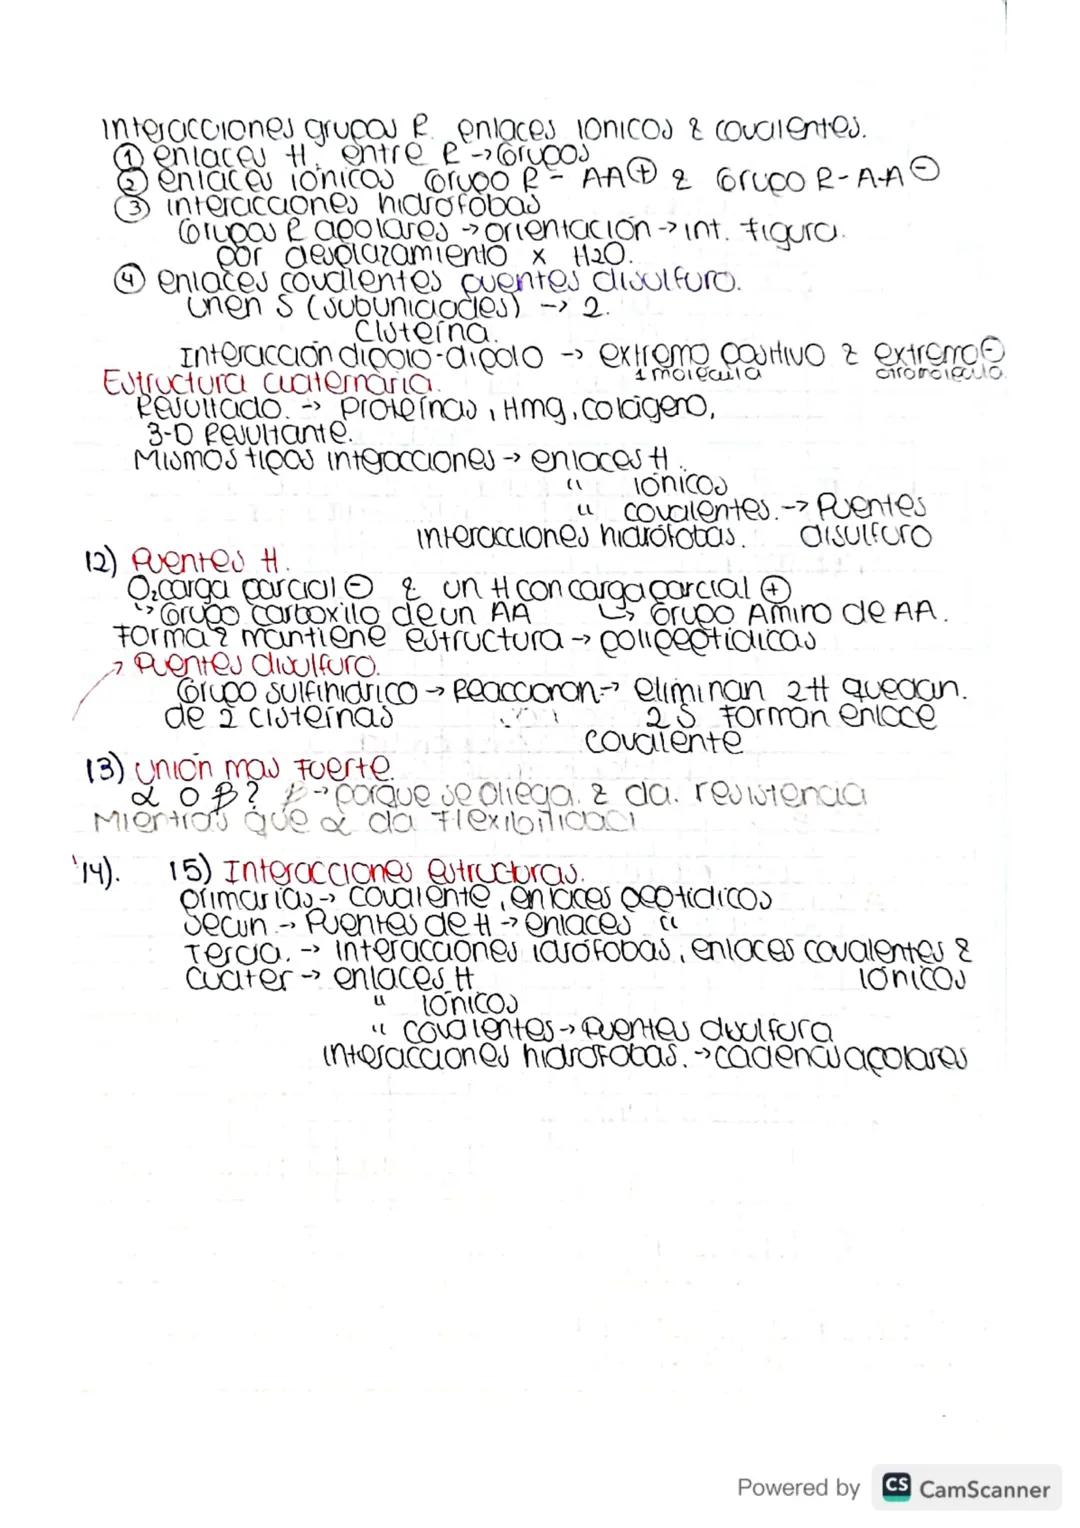 Interacciones grupos R. enlaces iónicos & covalentes.
① enlaces H. entre R -> Grupos
② enlaces iónicos Grupo R - AA⊕ & Grupo R-AA⊖
③ interacciones hidrofobas
Grupos R apolares -> orientación -> int. figura.
por desplazamiento x H2O.
④ enlaces covalentes puentes disulfuro.
Unen S (subunidades) -> 2.
Cisteína.
Interacción dipolo-dipolo -> extremo positivo & extremo⊖
1 molécula otra molécula.
Estructura cuaternaria.
Resultado. -> Proteínas, Hmg, colágeno,
3-D Resultante.
Mismos tipos interacciones -> enlaces H.
" iónicos
" covalentes. -> Puentes
interacciones hidrófobas. disulfuro
12) Puentes H.
O₂ carga parcial ⊖ & un H con carga parcial ⊕
↳ Grupo carboxilo de un AA ↳ Grupo Amino de AA.
Forma & mantiene estructura -> polipeptídicas
↗ Puentes disulfuro.
Grupo sulfihidrico -> Reaccionan -> eliminan 2H quedan.
de 2 cisteínas 2 S forman enlace
covalente
13) Unión mas Fuerte.
α o β? β -> porque se pliega. & da. resistencia
Mientras que α da flexibilidad
14). 15) Interacciones estructuras.
primarias -> covalente, enlaces peptidicos
Secun. -> Puentes de H -> enlaces "
Tercia. -> Interacciones idrófobas, enlaces covalentes &
Cuater -> enlaces H iónicos
" iónicos
" covalentes -> Puentes disulfura
interacciones hidrofobas. -> cadenas apolares
Powered by CS CamScanner